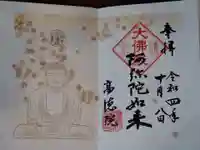 奉拝
令和四年
十月八日
大佛
阿弥陀如来
高徳院